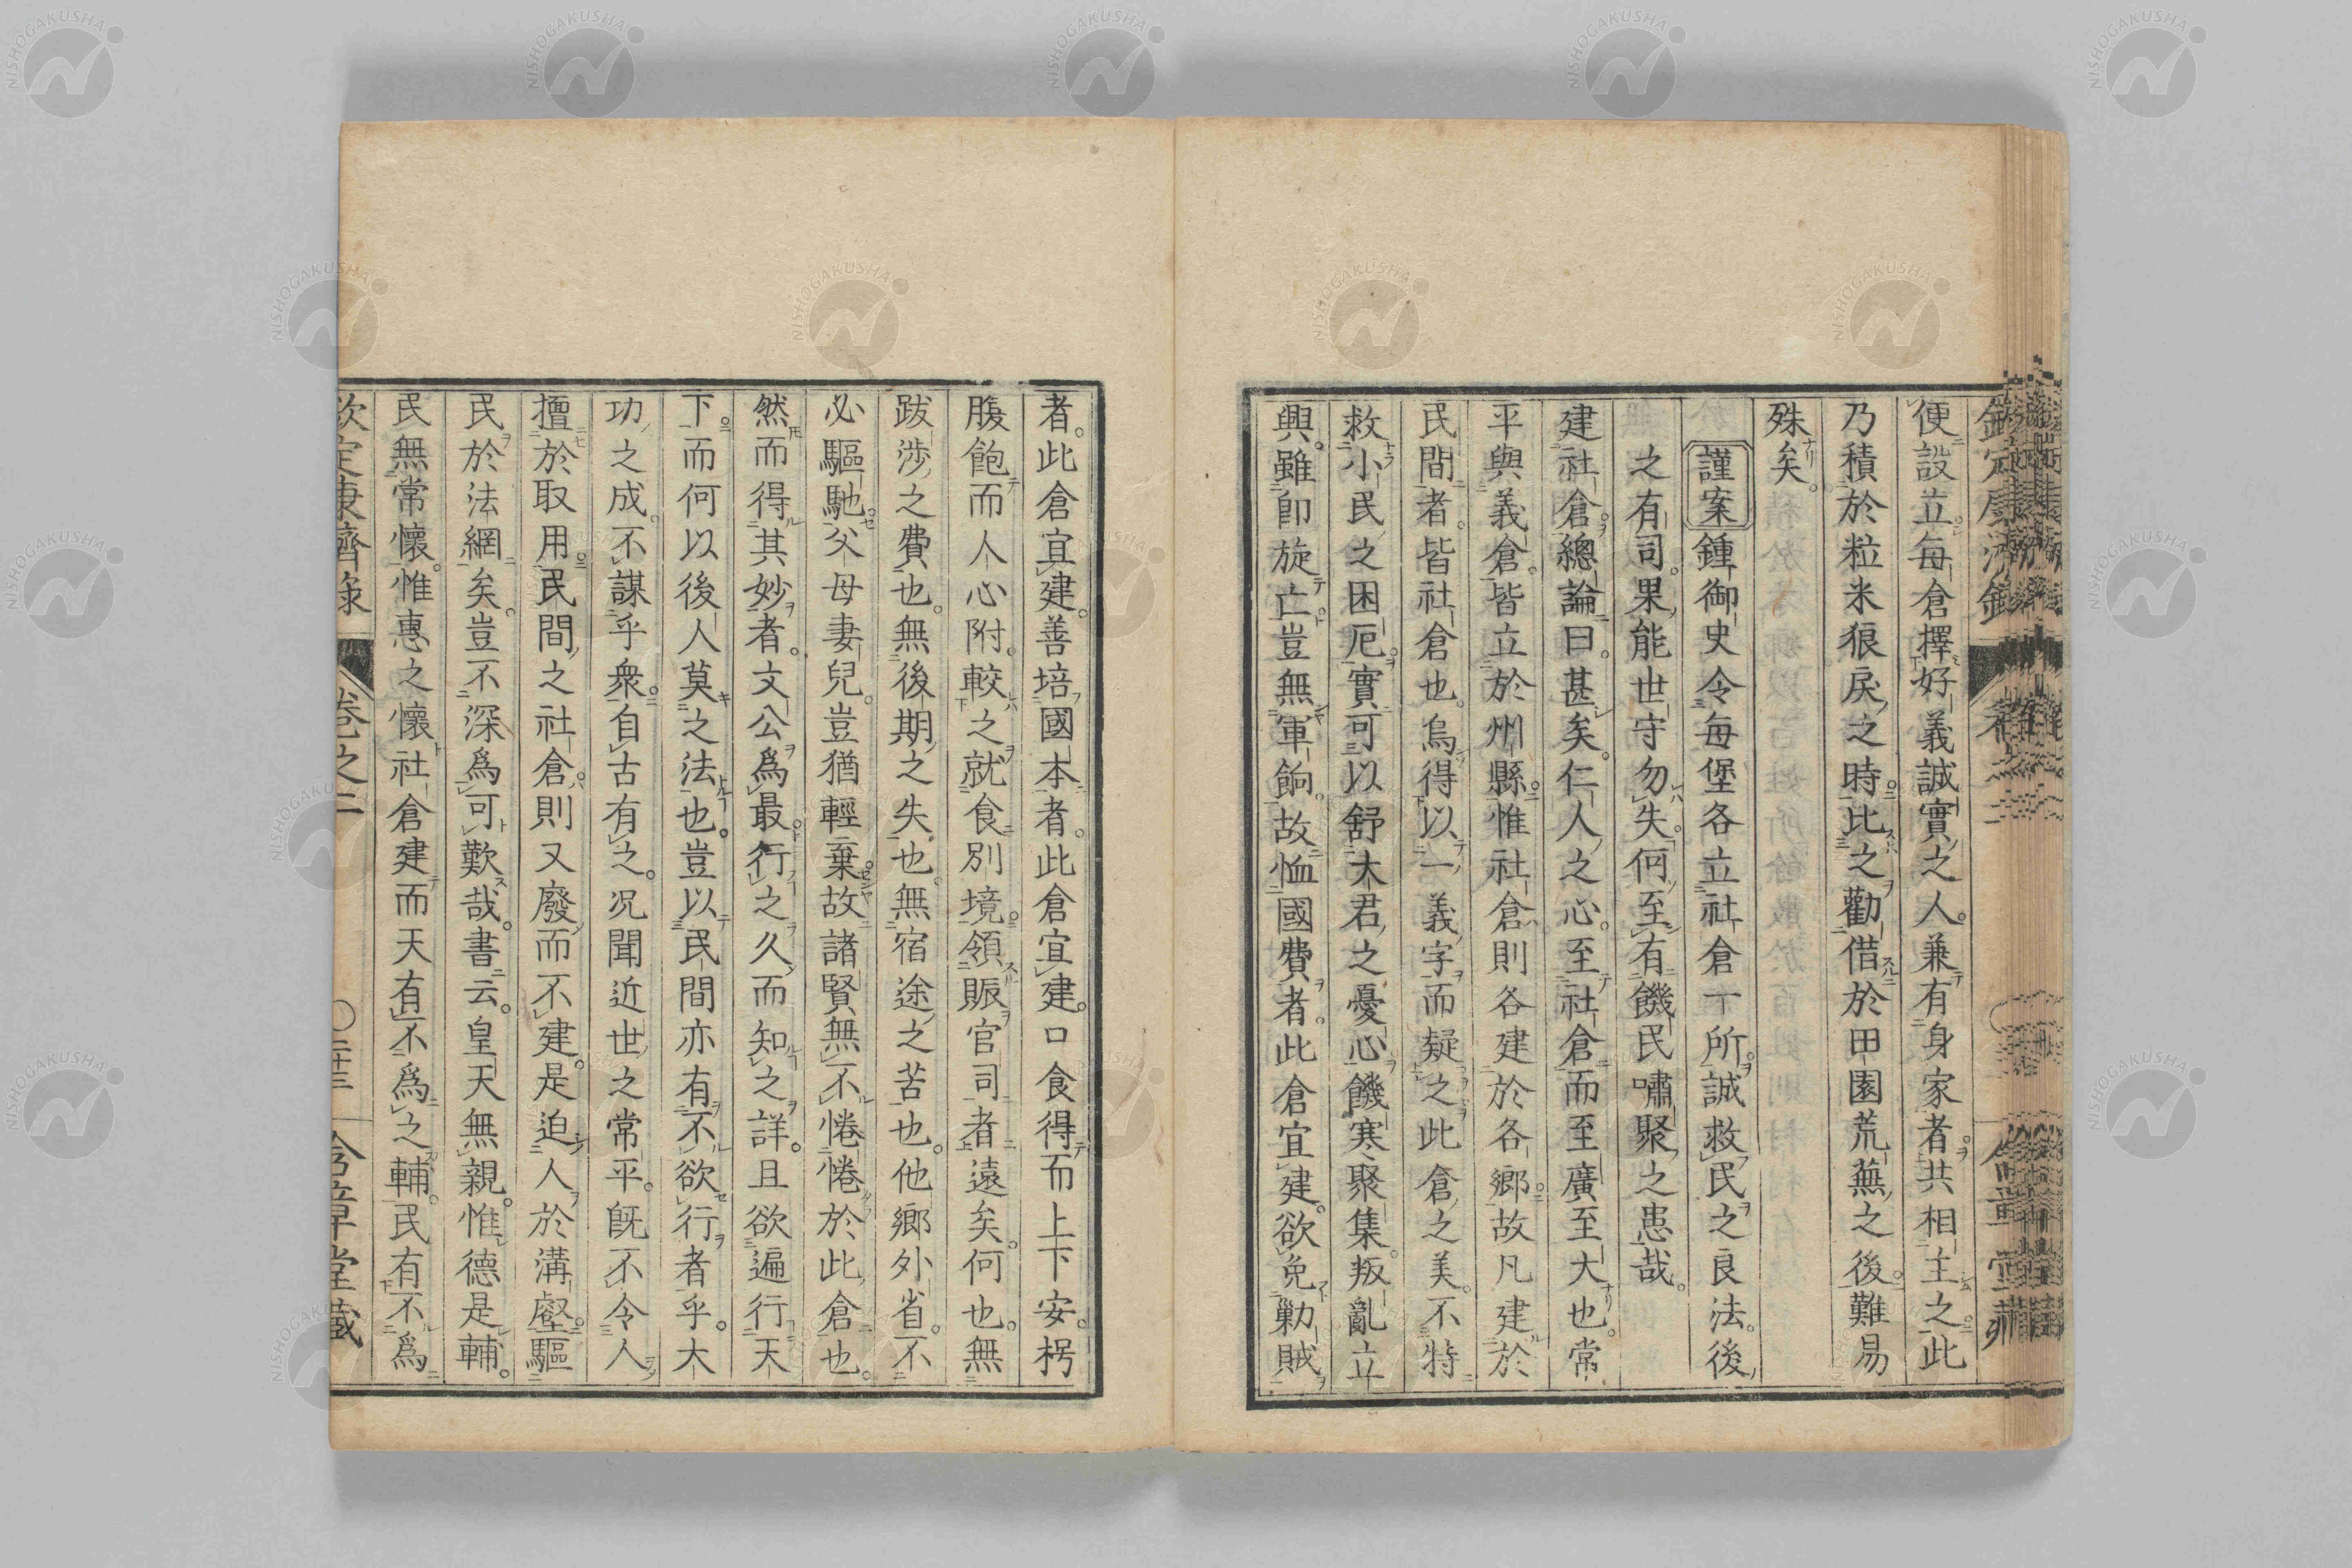 便設立每倉擇好義誠實之人。兼有身家者。共相主之。此
乃積於粒米狼戾之時。比之勸借於田園荒蕪之後。難易
殊矣。
謹案鍾御史令每堡各立社倉一所。誠救民之良法。後
之有司。果能世守勿失。何至有饑民嘯聚之患哉。
建社倉。總論曰。甚矣。仁人之心。至社倉而至廣至大也。常
平與義倉。皆立於州縣。惟社倉則各建於各鄉。故凡建於
民間者。皆社倉也。烏得以一義字而疑之。此倉之美。不特
救小民之困厄。實可以舒大君之憂心。饑寒聚集。叛亂立
興。雖即旋亡。豈無軍餉。故恤國費者。此倉宜建。欲免勦賊
者。此倉宜建。善培國本者。此倉宜建。口食得而上下安。枵
腹飽而人心附。較之就食別境。領賑官司者遠矣。何也。無
跋涉之費也。無後期之失也。無宿途之苦也。他鄉外省。不
必驅馳。父母妻兒。豈猶輕棄。故諸賢無不惓惓於此倉也。
然而得其妙者。文公為最。行之久而知之詳。且欲遍行天
下。而何以後人莫之法也。豈以民間亦有不欲行者乎。大
功之成。不謀乎衆。自古有之。况聞近世之常平。既不令人
擅於取用。民間之社倉。則又廢而不建。是迫人於溝壑。驅
民於法網矣。豈不深為可歎哉。書云。皇天無親。惟德是輔。
民無常懷。惟惠之懷。社倉建而天有不為之輔。民有不為
欽定康濟錄 卷之二 ○二十三 含章堂藏